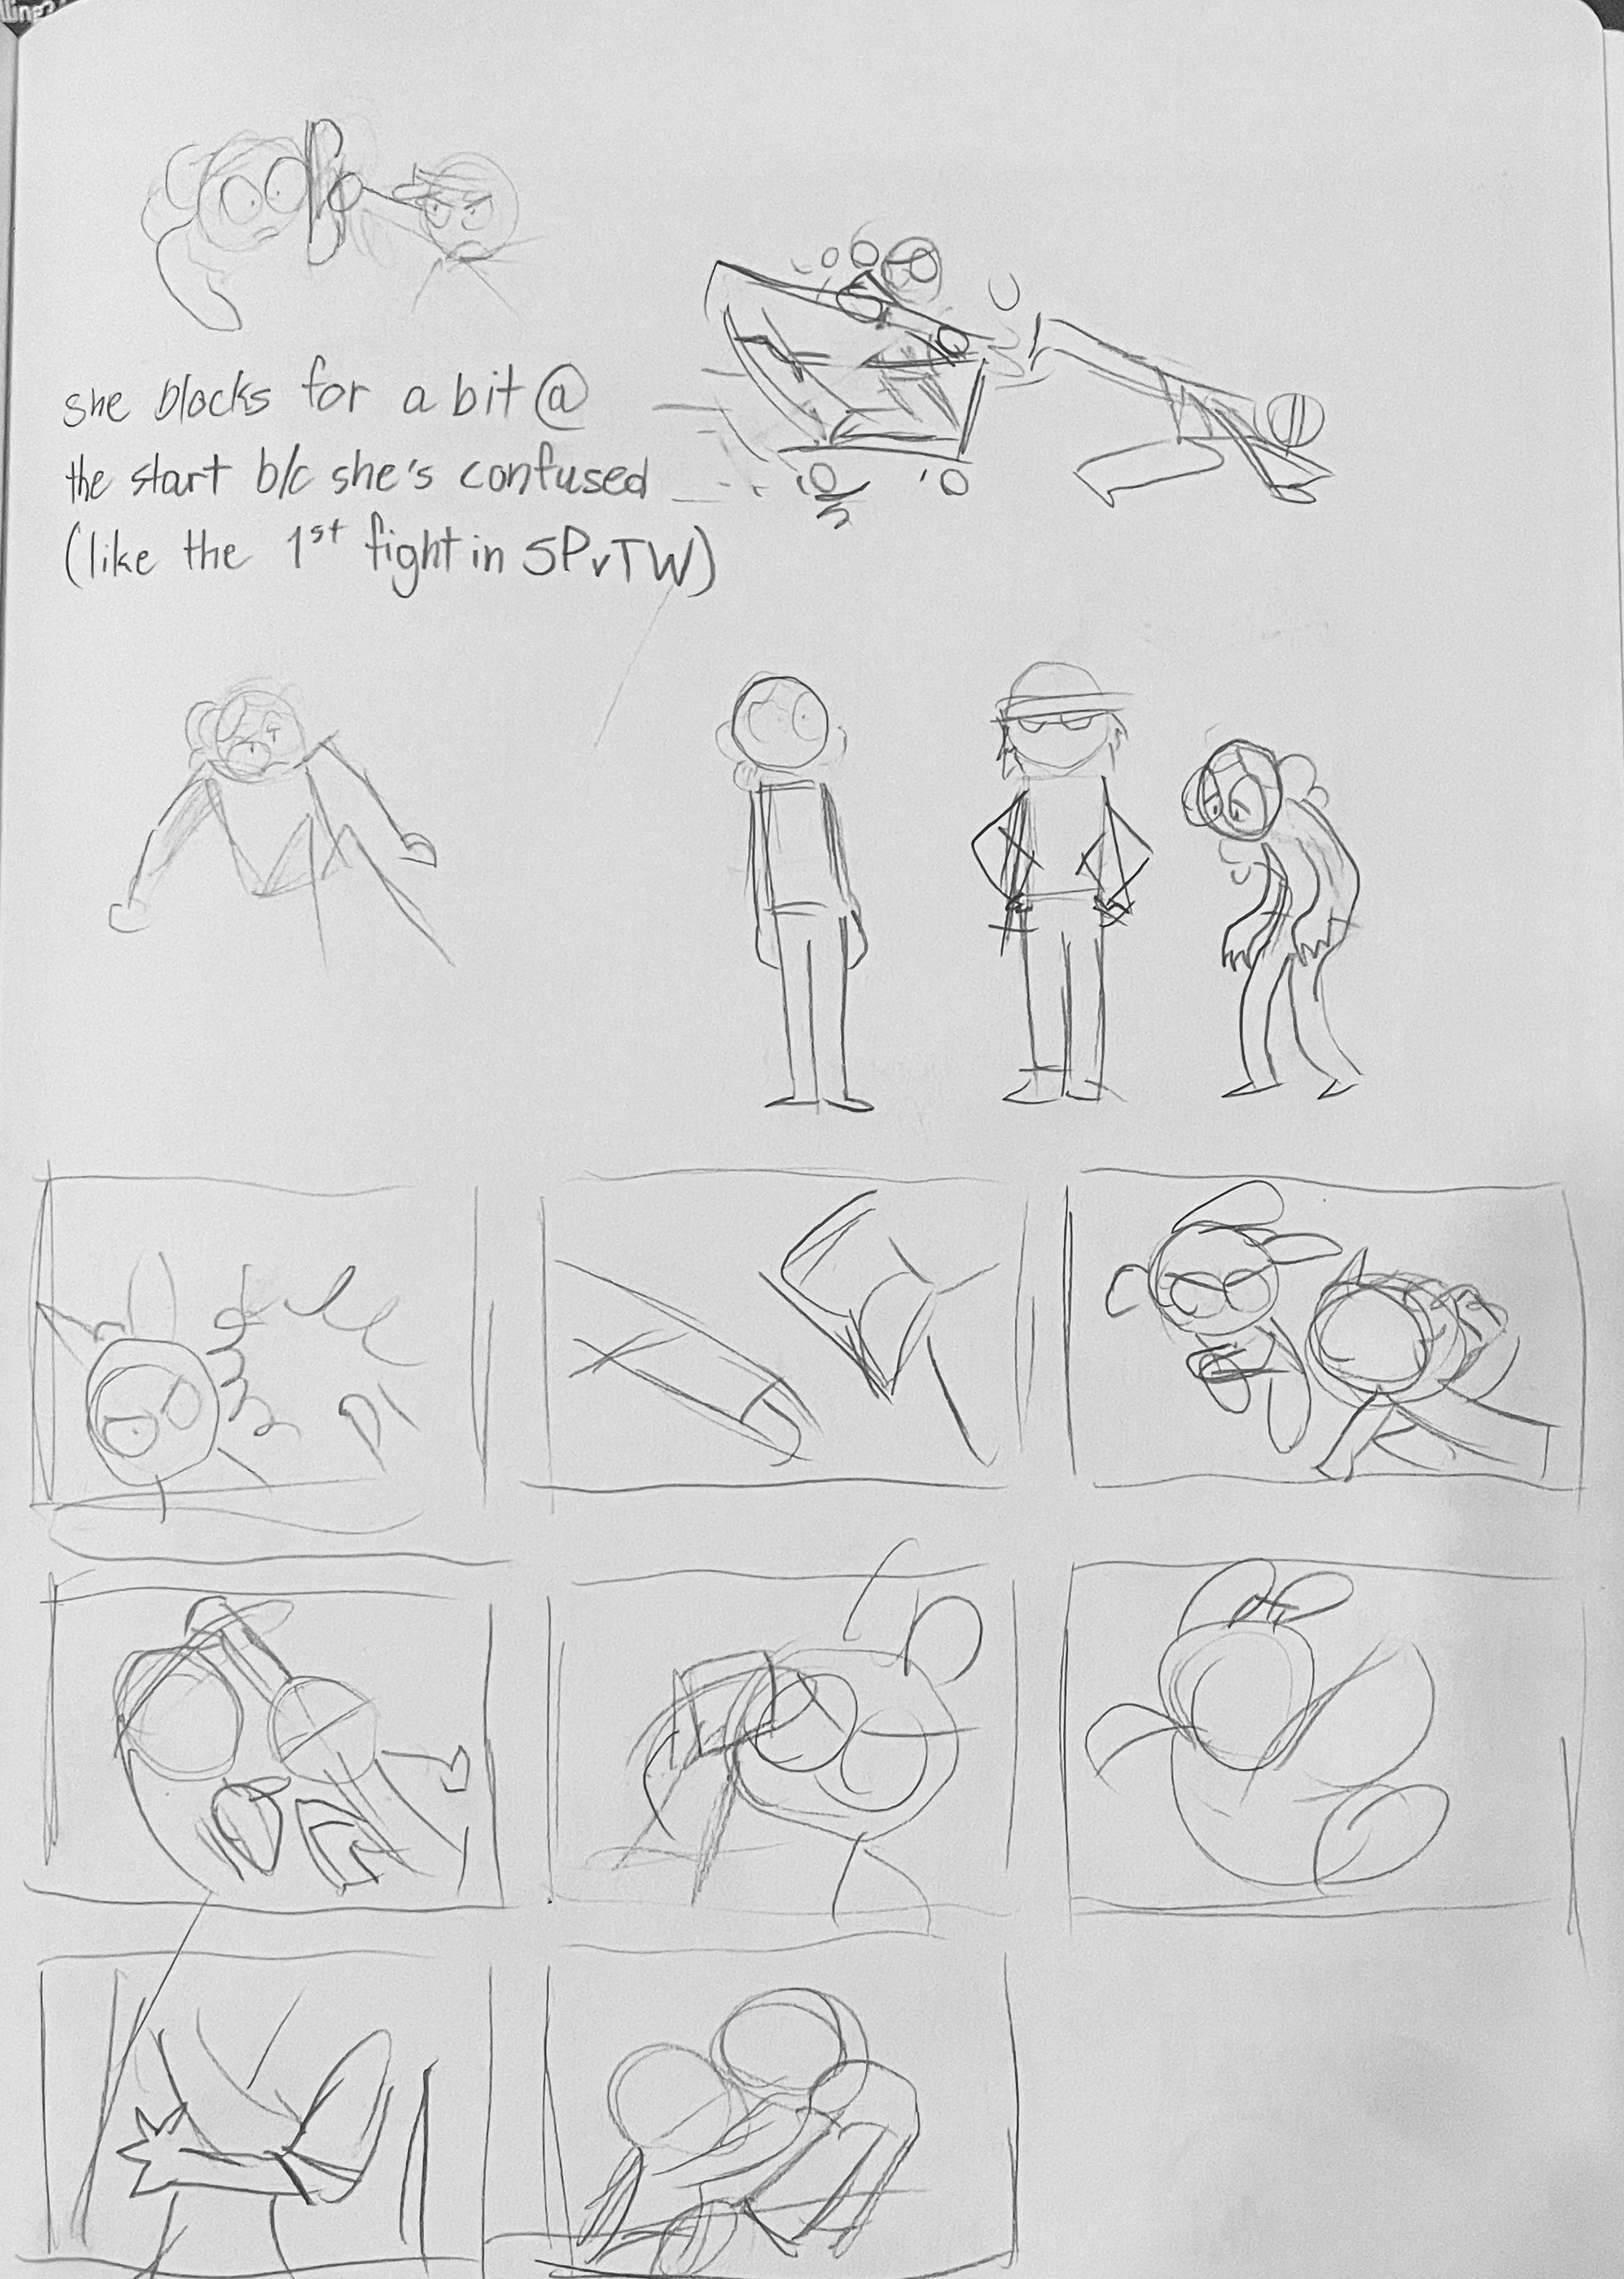 she blocks for a bit @
the start b/c she's confused
(like the 1st fight in SPvTW)